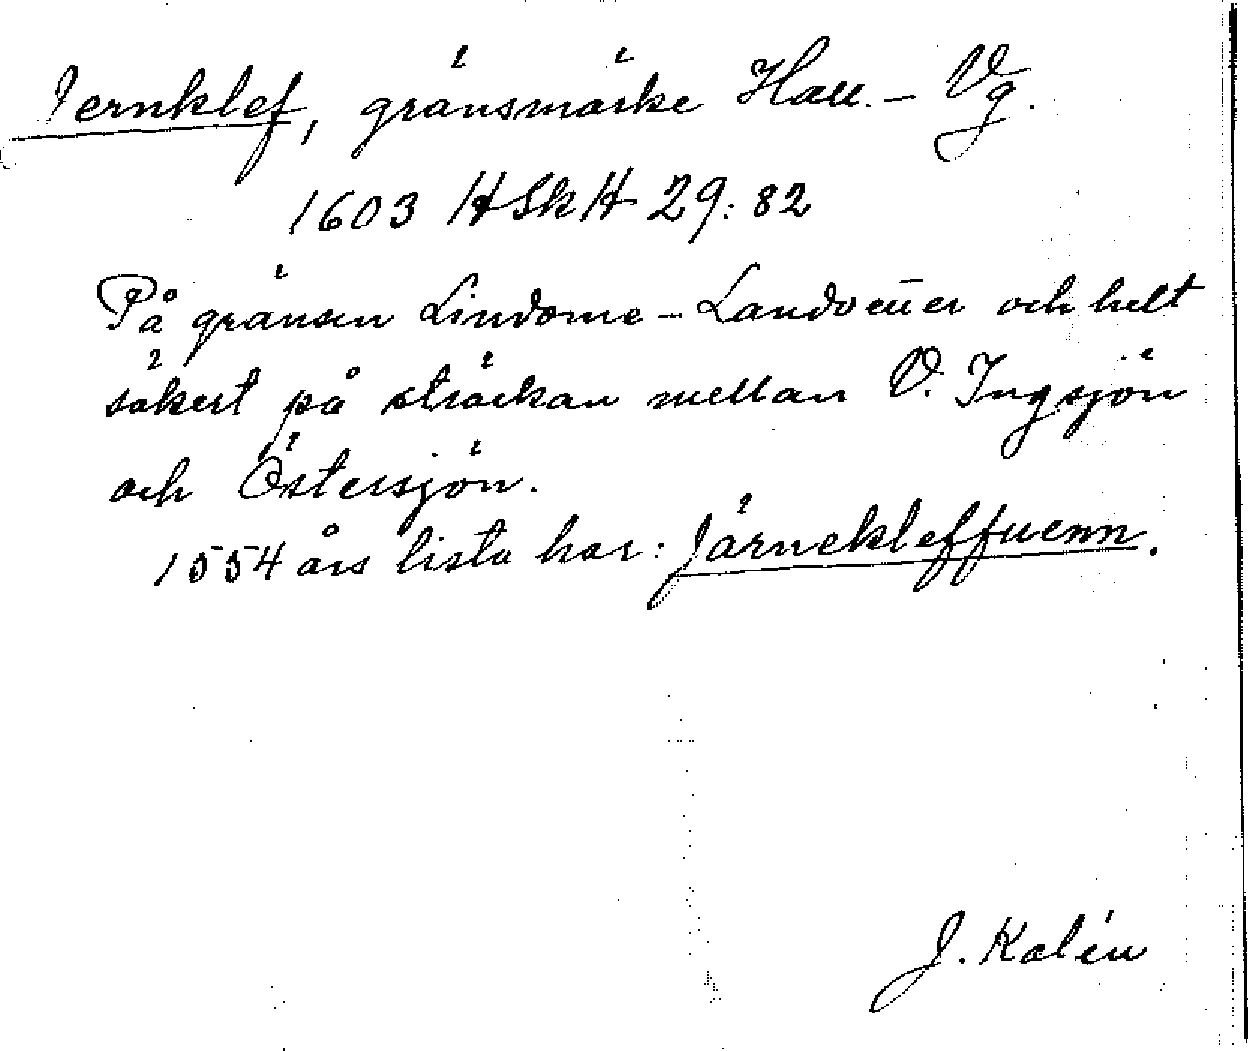 Jernklef, gränsmärke Hall. - Vg.
1603 HSkH 29:82
På gränsen Lindome - Landvetter och helt
säkert på sträckan mellan Ö. Ingsjön
och Östersjön.
1554 års lista har: Järnekleffuenn.
J. Kalén